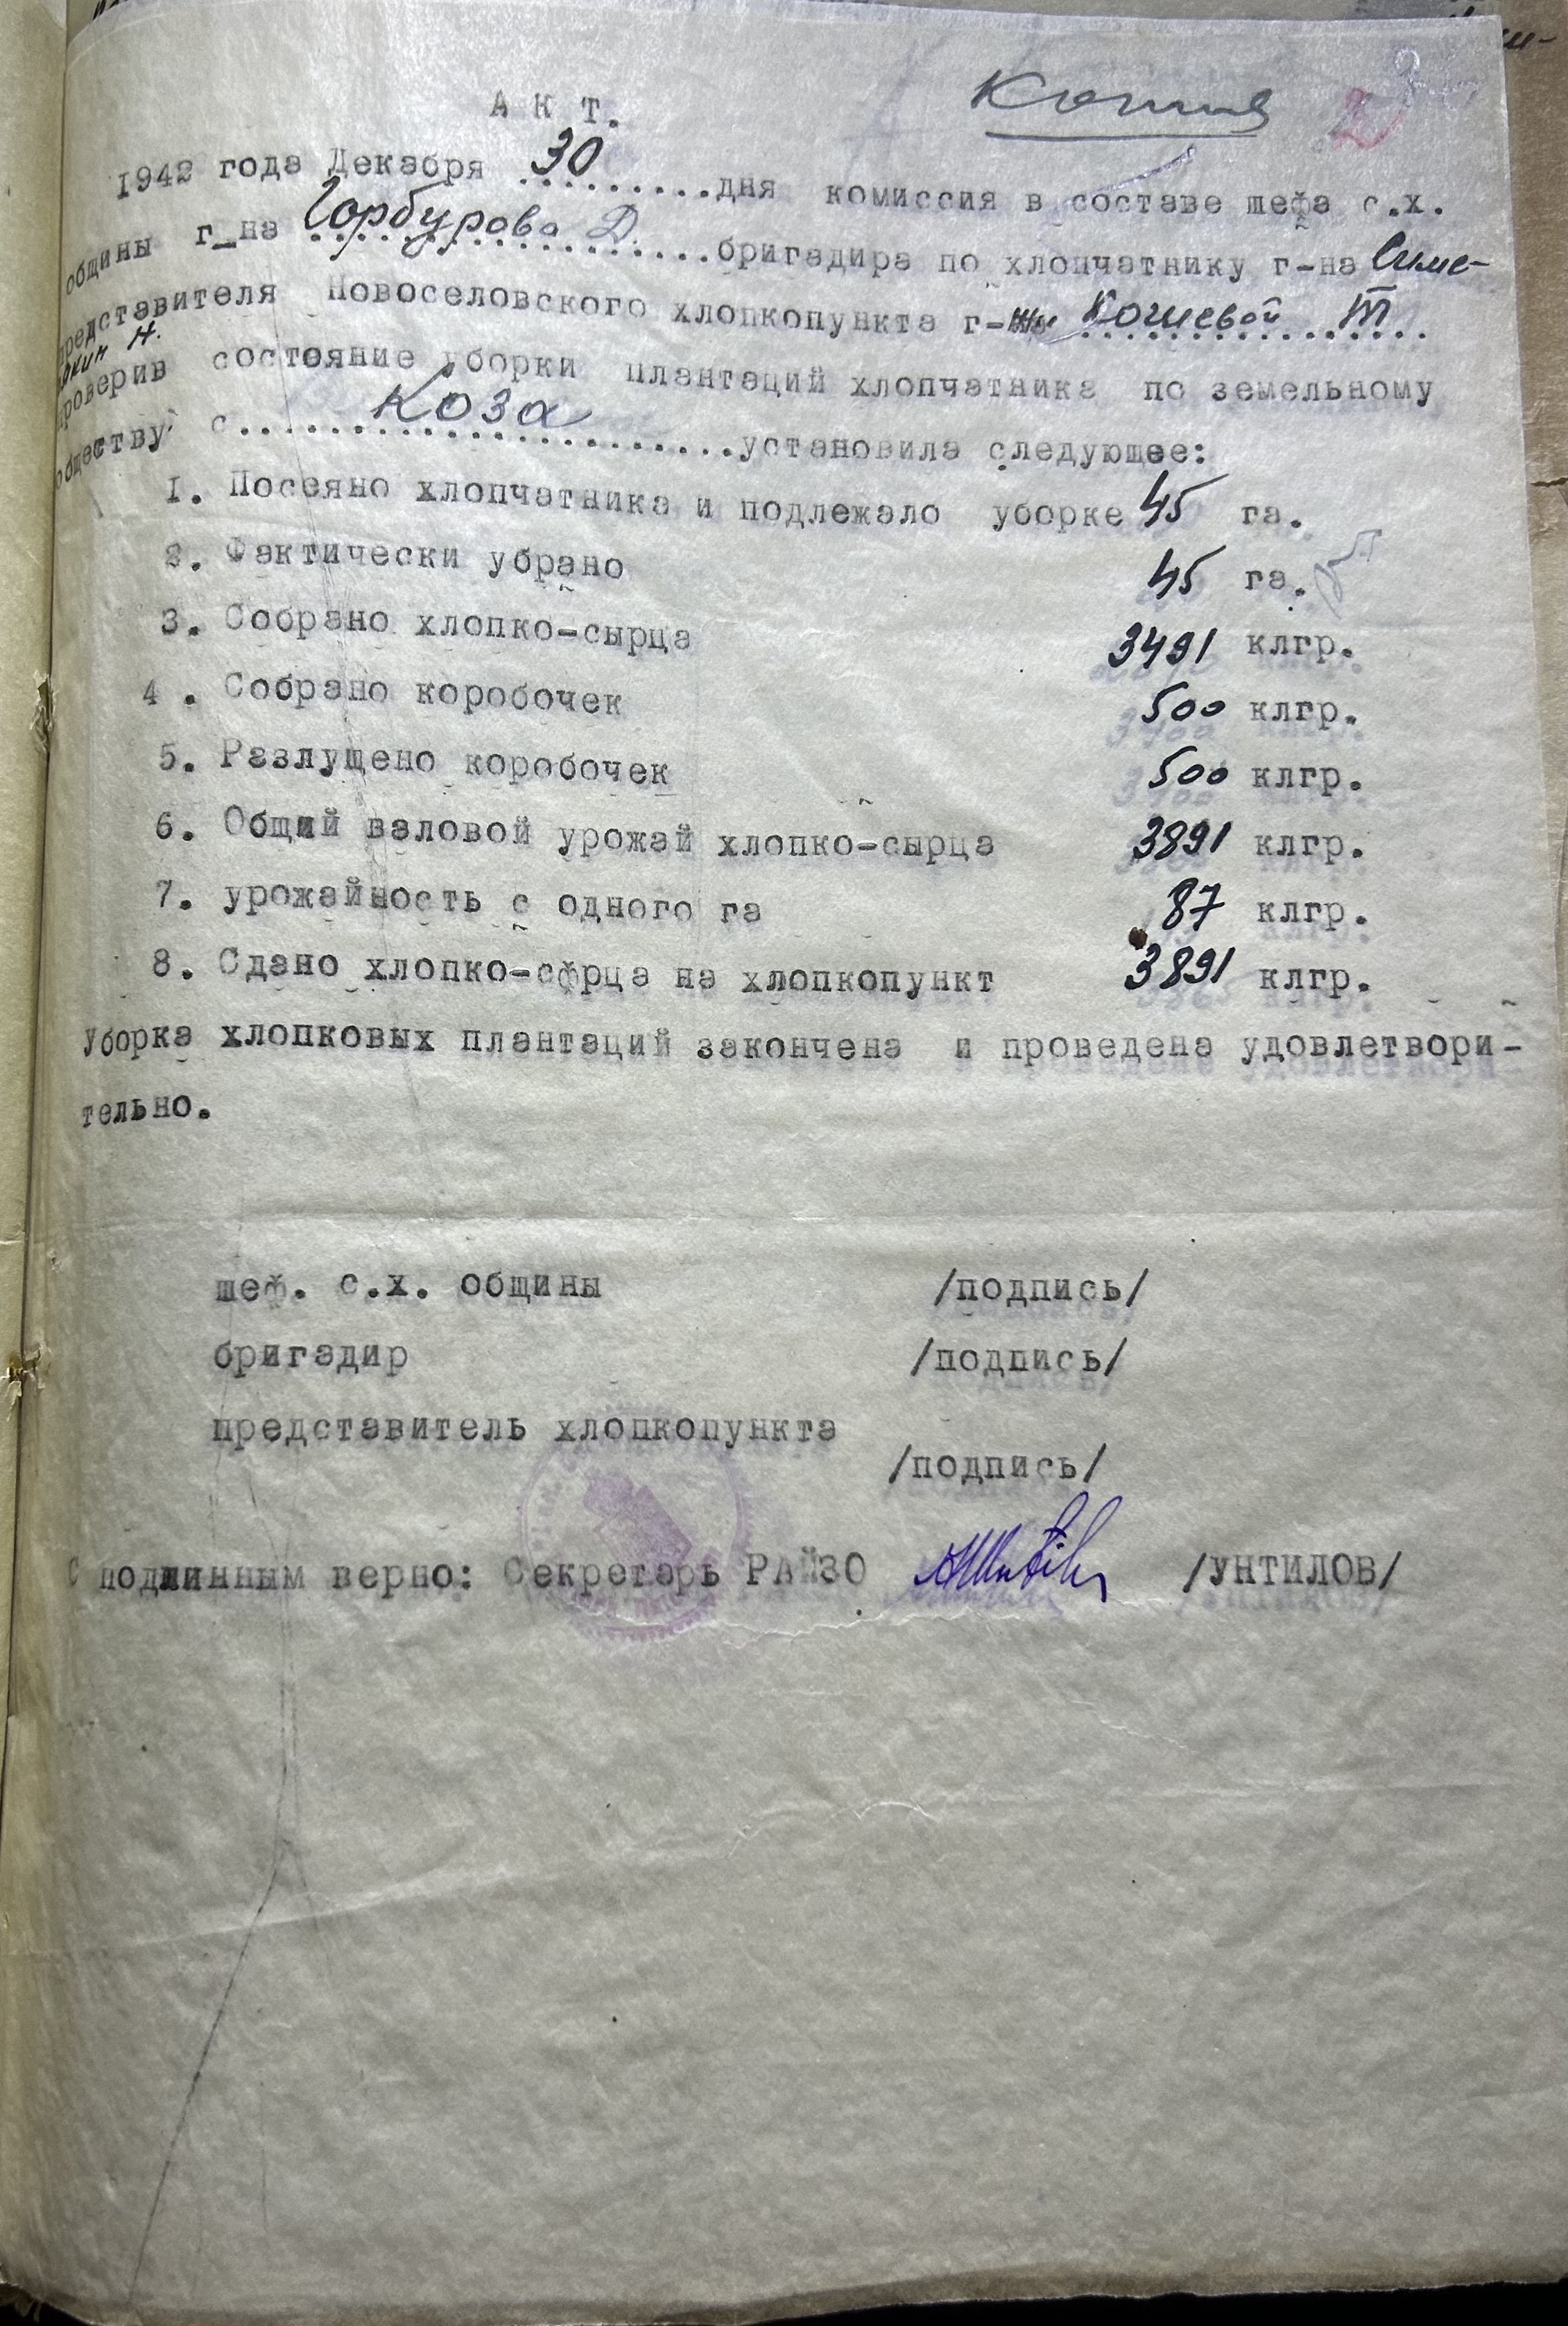 Копия
АКТ.
1942 года Декабря 30.........дня комиссия в составе шефа с.х.
общины г_на Горбурова Д.................бригадира по хлопчатнику г-на Симе-
представителя Новоселовского хлопкопункта г-жи Кочиевой Т................
якин Н.
проверив состояние уборки плантаций хлопчатника по земельному
обществу с......Коза...................установила следующее:
1. Посеяно хлопчатника и подлежало уборке 45 га.
2. Фактически убрано 45 га.
3. Собрано хлопко-сырца 3491 клгр.
4 . Собрано коробочек 500 клгр.
5. Разлущено коробочек 500 клгр.
6. Общий валовой урожай хлопко-сырца 3891 клгр.
7. урожайность с одного га 87 клгр.
8. Сдано хлопко-сфрца на хлопкопункт 3891 клгр.
Уборка хлопковых плантаций закончена и проведена удовлетвори-
тельно.
шеф. с.х. общины /подпись/
бригадир /подпись/
представитель хлопкопункта
/подпись/
С подлинным верно: Секретарь РАЙЗО /УНТИЛОВ/